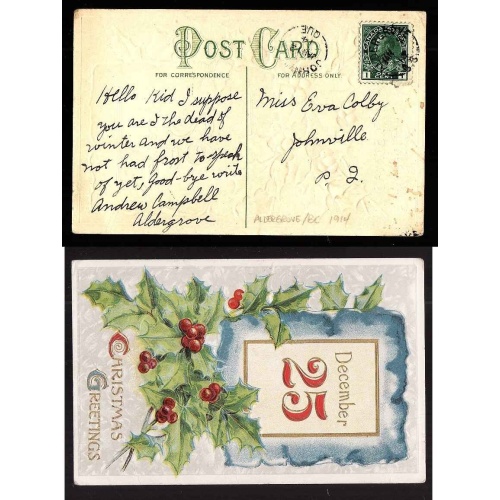 POST CARD
FOR CORRESPONDENCE
FOR ADDRESS ONLY
Hello Kid I suppose
you are I the dead of
winter and we have
not had frost to speak
of yet, Good-bye write
Andrew Campbell
Aldergrove
Miss Eva Colby
Johnville
P. Q.
ALDERGROVE/BC 1914
QUE
1 CENT 1
December
25
CHRISTMAS
GREETINGS